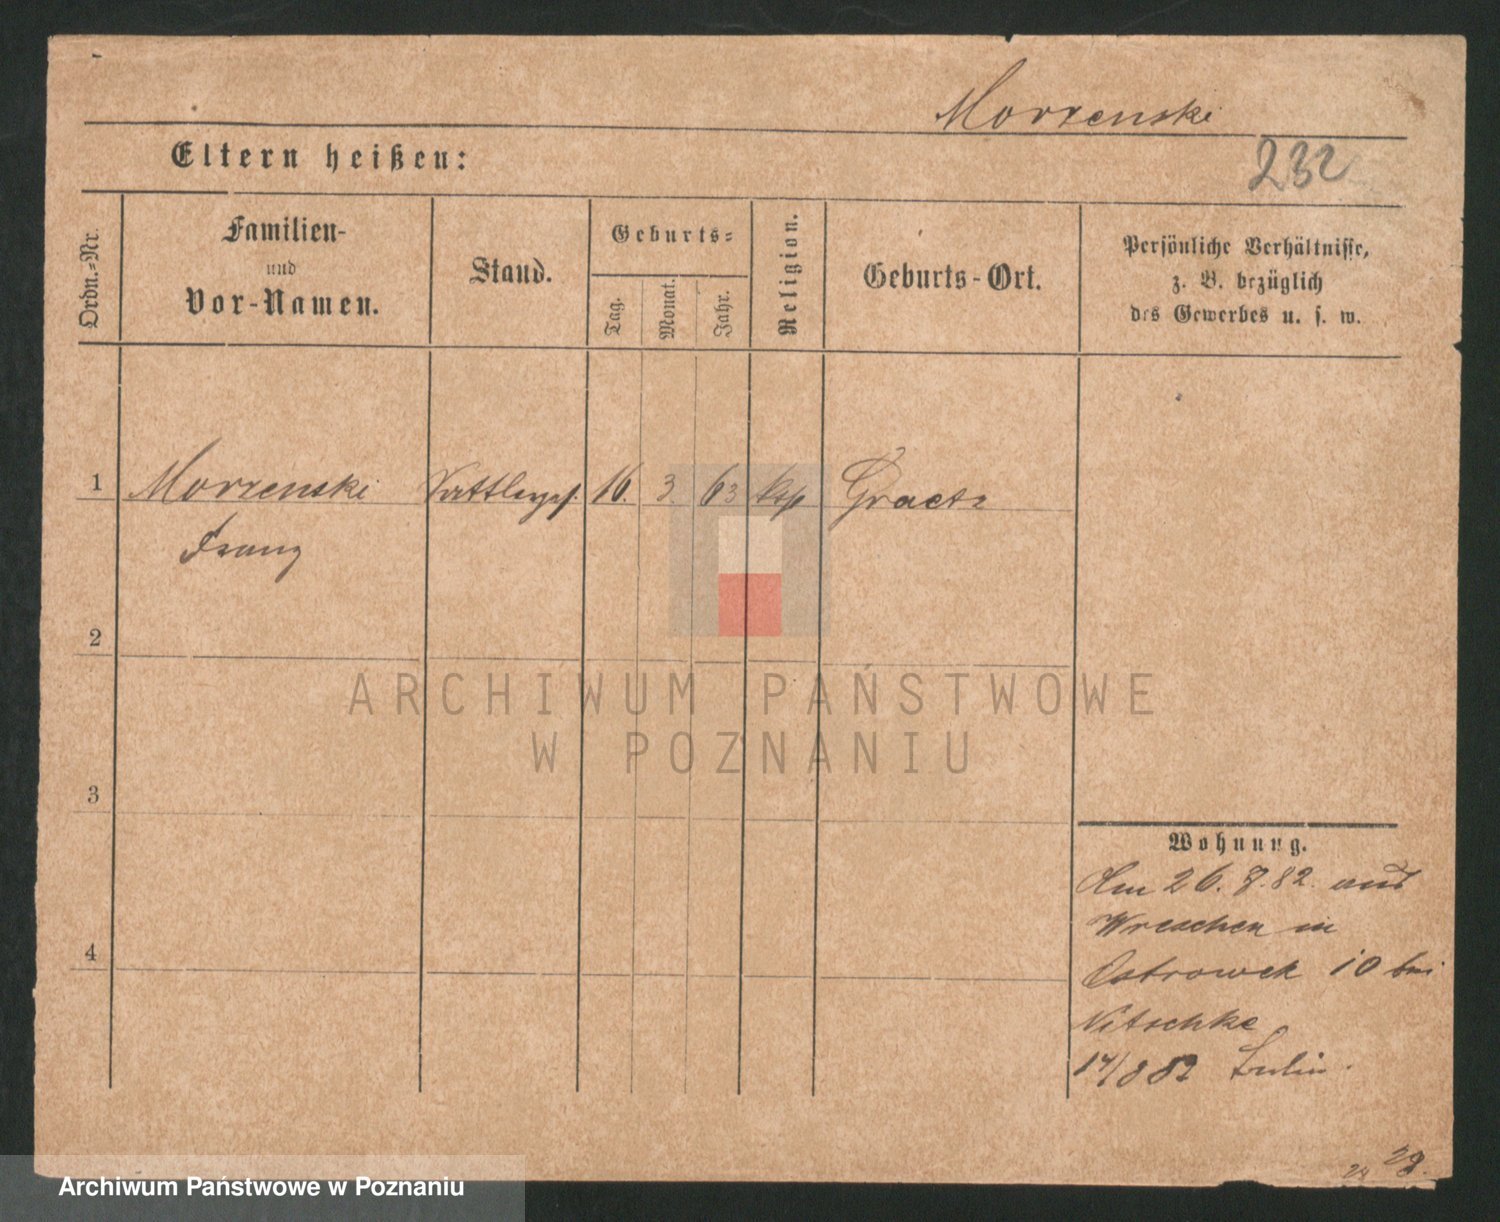 Morzenski
232
Eltern heißen:
Ordn.=Nr.
Familien-
und
Vor-Namen.
Stand.
Geburts=
Tag.
Monat.
Jahr.
Religion.
Geburts-Ort.
Persönliche Verhältnisse,
z. B. bezüglich
des Gewerbes u. s. w.
1 Morzenski Sattlerges. 16. 3. 63 Graetz
Franz
2
3
4
Wohnung.
Am 26. 7. 82. aus
Wreschen in
Ostrowek 10 bei
Nitschke
17/8 82 Berlin.
28.
ARCHIWUM PAŃSTWOWE
W POZNANIU
Archiwum Państwowe w Poznaniu